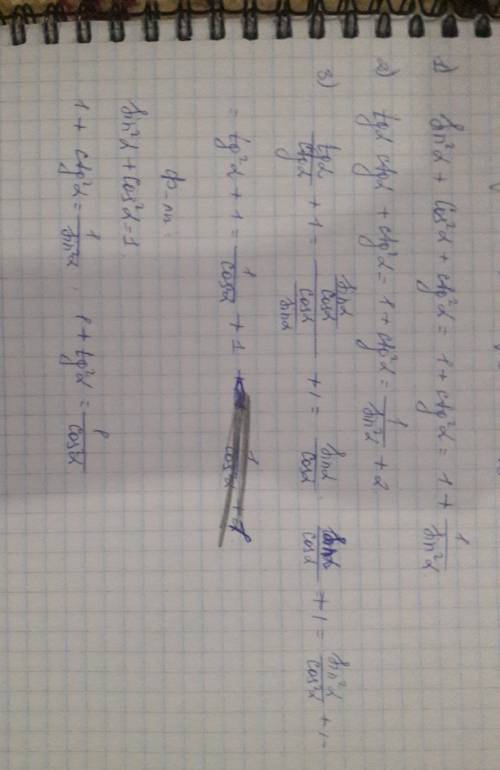 1) sin²α + cos²α + ctg²α = 1 + ctg²α = 1 + 1/sin²α
2) tgα ctgα + ctg²α = 1 + ctg²α = 1/sin²α + 2
3) tgα/ctgα + 1 = (sinα/cosα)/(cosα/sinα) + 1 = sinα/cosα · sinα/cosα + 1 = sin²α/cos²α + 1 =
= tg²α + 1 = 1/cos²α + 1
ф-лы:
sin²α + cos²α = 1
1 + ctg²α = 1/sin²α ; 1 + tg²α = 1/cos²α